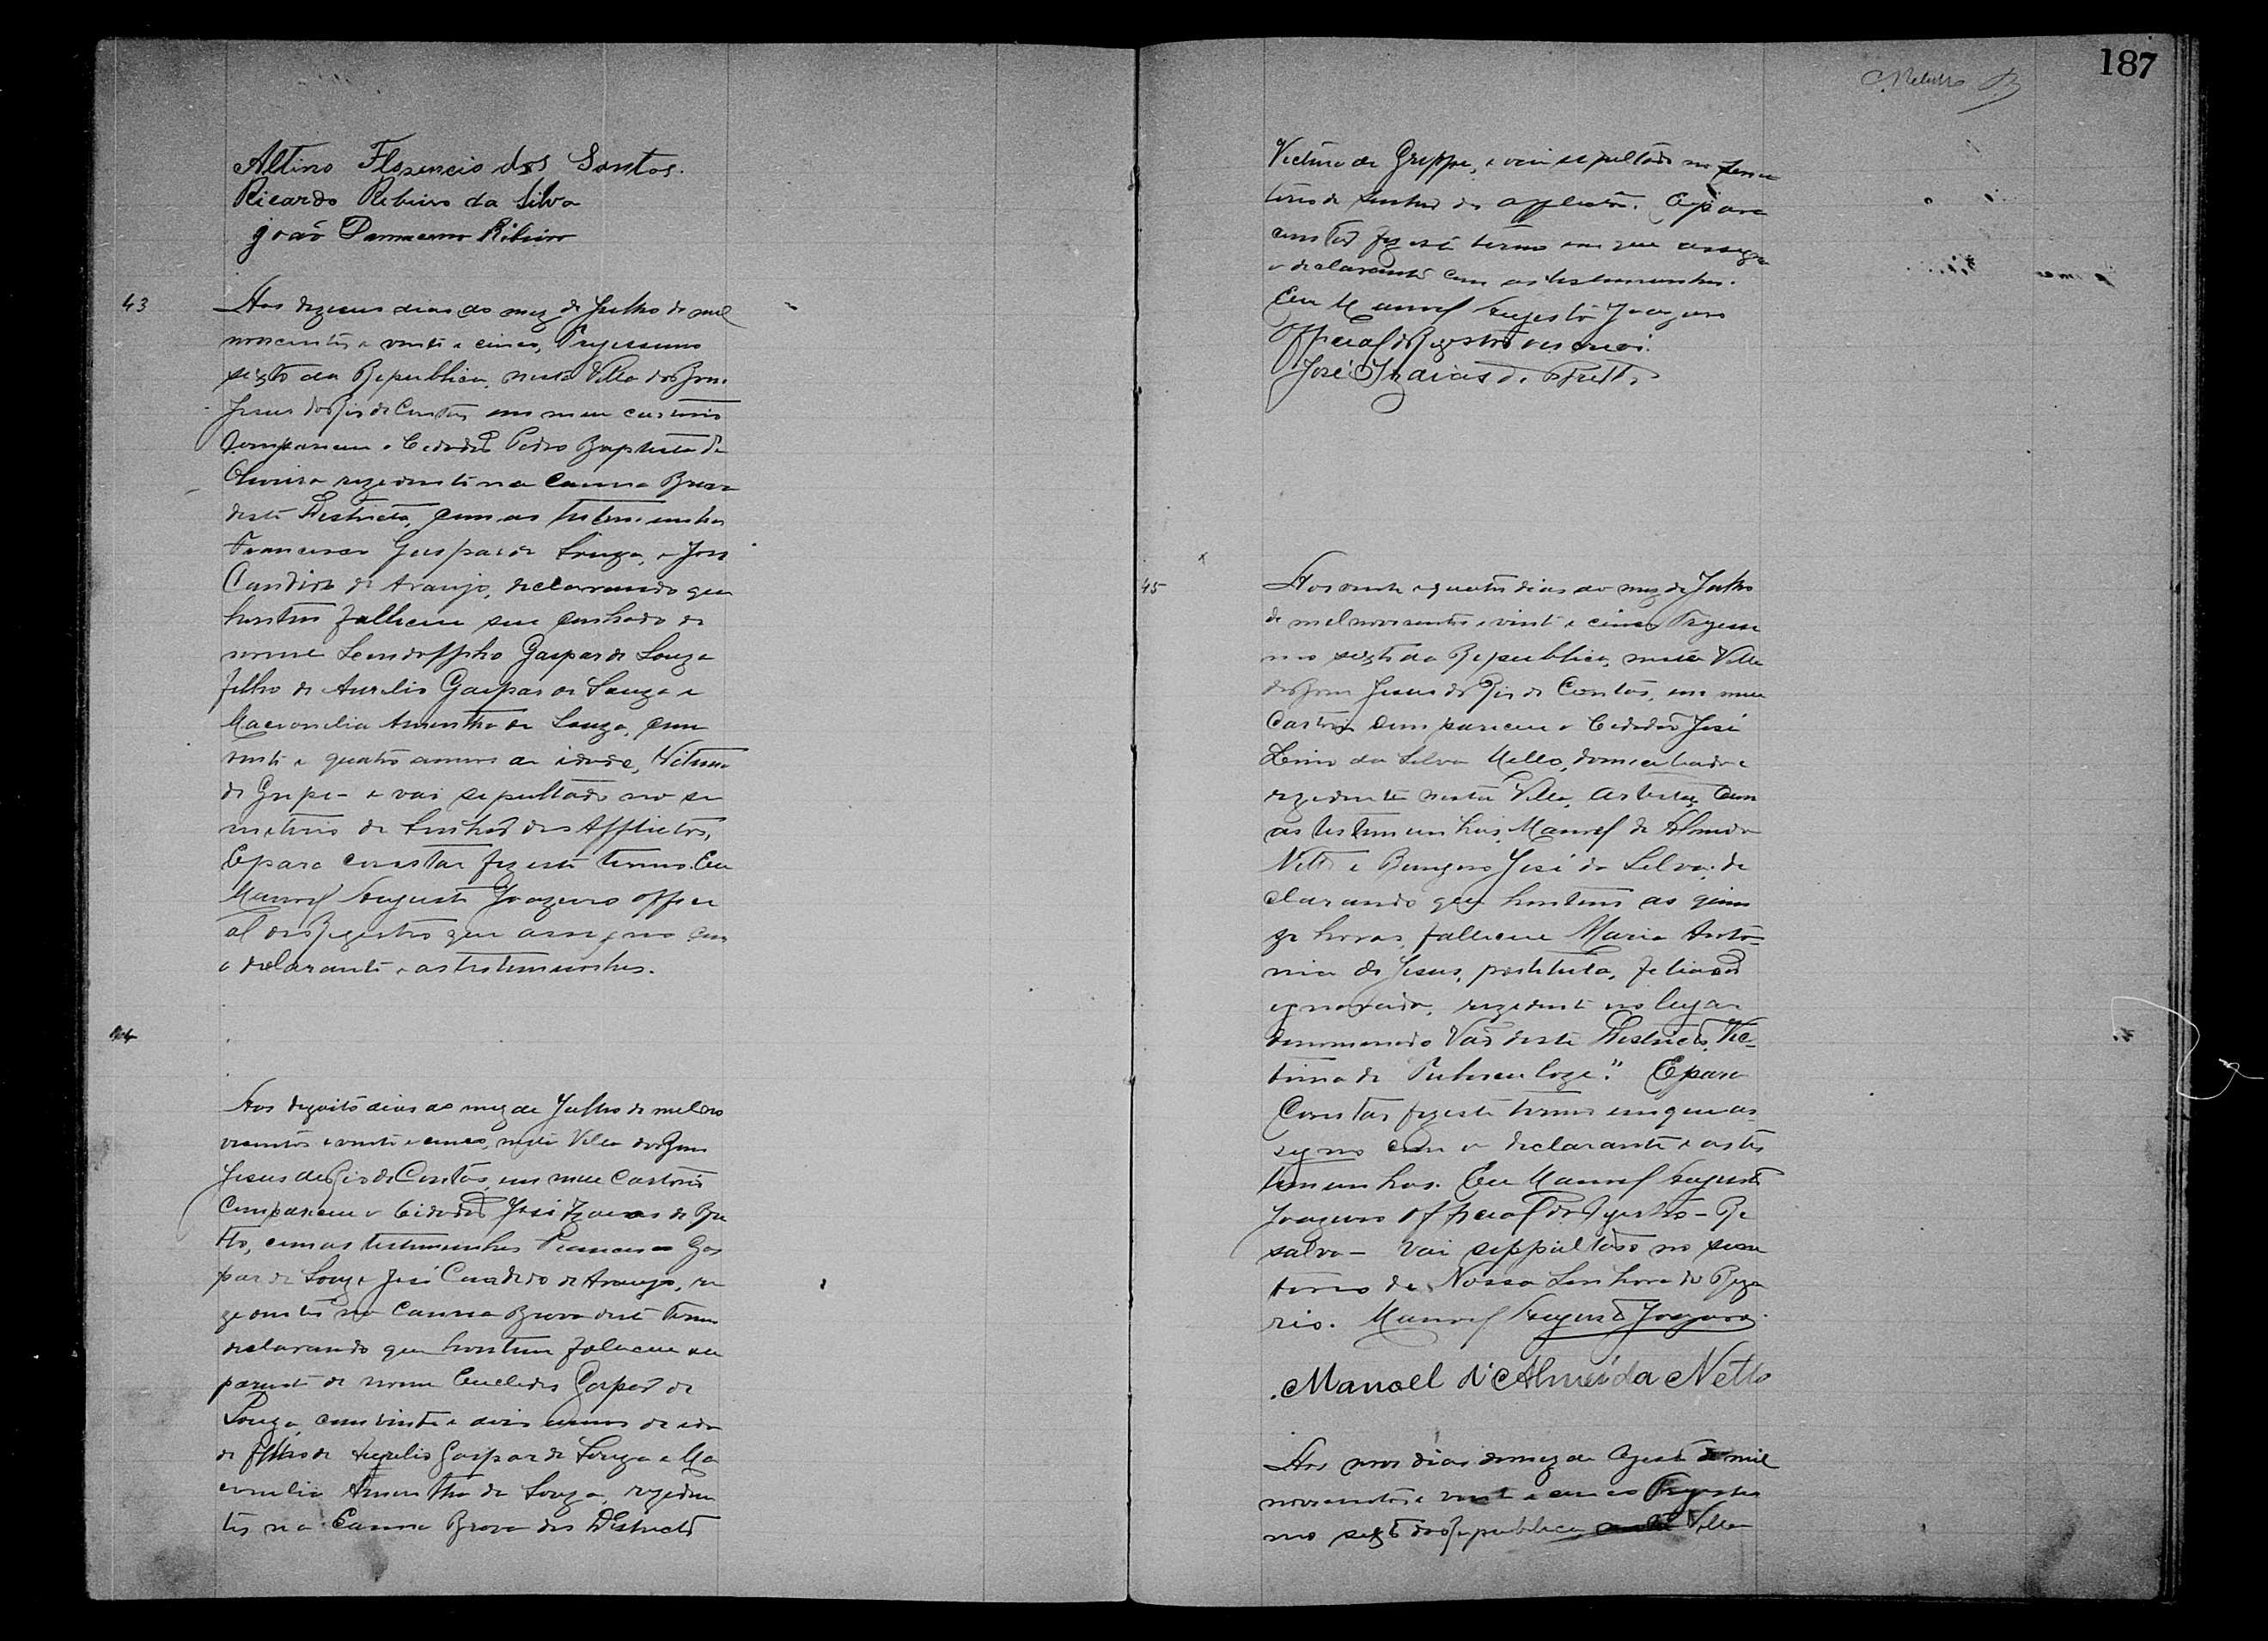 Altino Florencio dos Santos.
Ricardo Ribeiro da Silva
João Damaceno Ribeiro
43
Aos dezeseis dias do mez de Julho de mil
novecentos e vinte e cinco, Trigessimo
sexto da Republica, nesta Villa do Bom
Jesus do Rio de Contas em meu cartorio
Compareceu o Cidadão Pedro Baptista de
Oliveira rezedente na Canna Brava
deste Destricto, com as testemunhas
Francisco Gaspar de Souza, e José
Candido de Araujo, declarando que
hontem falleceu seu cunhado de
nome Leandolpho Gaspar de Souza
filho de Aurelio Gaspar de Souza e
Macionilia Amentha de Souza, com
vinte e quatro annos de idade, Victima
de Gripe - e vai sepultado no se
miterio de Senhor dos Afflictos,
E para constar fiz este termo. Eu
Manoel Augusto Joazeiro offici
al do Registro que assigno com
o declarante e as testemunhas.
44
Aos dezoito dias do mez de Julho de mil no
vecentos e vinte e cinco, nesta Villa do Bom
Jesus do Rio de Contas, em meu Cartorio
Compareceu o Cidadão José Izaias de Bri
tto, com as testemunhas Francisco Gas
par de Souza e José Candido de Araujo, re
zedentes na Canna Brava deste termo
declarando que hontem faleceu seu
parente de nome Euclides Gaspar de
Souza, com vinte e dois annos de ida
de filho de Aurelio Gaspar de Souza e Ma
cionilia Amentha de Souza, rezeden
tes na Canna Brava do Destricto
187
Victima de Grippe, e vai sepultado no semi
terio de Senhor dos Afflictos. E para
constar fiz este termo em que assigno
o declarante com as testemunhas.
Eu Manoel Augusto Joazeiro
Official do Registro escrevi.
José Izaias de Britto
45
Aos vinte e quatro dias do mez de Julho
de mil novecentos e vinte e cinco Trigessi
mo sexto da Republica, nesta Villa
do Bom Jesus do Rio de Contas, em meu
Cartorio compareceu o Cidadão José
Lino da Silva Mello, domiciliado e
rezedente nesta Villa, artista, Com
as testemunhas, Manoel de Almeida
Netto e José da Silva, de
clarando que hontem as quin
ze horas, falleceu Maria Anto-
nia de Jesus, prostituta, filiação
ignorada, rezedente no lugar
denominado Vão deste Destricto, Vic-
tima de Tuberculoze". E para
Constar fiz este termo em que as
signo com o declarante e as tes
temunhas. Eu Manoel Augusto
Joazeiro Official do Registro - Re
salva - Vai seppultado no semi
terio de Nossa Senhora do Roza
rio. Manoel Augusto Joazeiro.
Manoel d'Almeida Netto
Aos nove dias do mez de Agosto de mil
novecentos e vinte e cinco Trigessi
mo sexto da Republica, nesta Villa